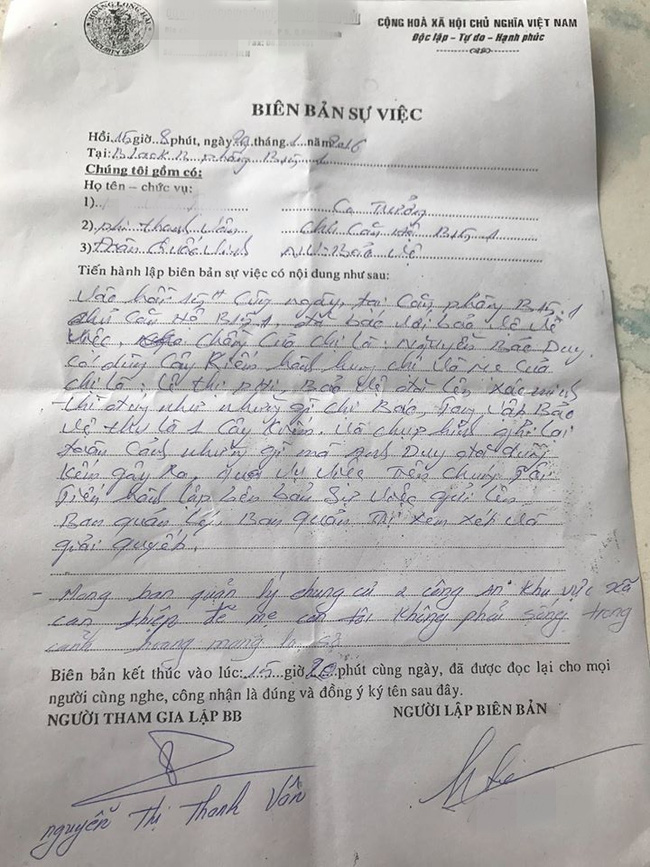 HOÀNG LONG HẢI
SECURITY GUARD
CỘNG HOÀ XÃ HỘI CHỦ NGHĨA VIỆT NAM
Độc lập - Tự do - Hạnh phúc
BIÊN BẢN SỰ VIỆC
Hồi: 15 giờ 8 phút, ngày tháng 1 năm 2016
Tại: Black B phòng B15.1
Chúng tôi gồm có:
Họ tên – chức vụ:
1) Ca Trưởng
2) thanh Vân Chủ Căn Hộ B15.1
3) Trần Quốc Vinh NV: Bảo Vệ
Tiến hành lập biên bản sự việc có nội dung như sau:
Vào hồi 15H Cùng ngày, tại Căn phòng B15.1
chủ Căn Hộ B15.1, đã báo với bảo vệ về
việc, Chồng Của chị là: Nguyễn Bảo Duy
có dùng Cây Kiếm hành hung chị và mẹ Của
chị là: Lê thị phi, Bảo vệ đã lên xác minh
thì đúng như những gì chị Báo, lập Bảo
vệ thu là 1 Cây Kiếm. Và chụp hình ghi lại
toàn Cảnh những gì mà anh Duy đã dùng
Kiếm gây Ra. Qua vụ việc Trên chúng Tôi
Tiến hành lập biên bản Sự việc gửi lên
Ban quản lý, Ban quản Trị xem xét và
giải quyết.
- Mong ban quản lý chung cư & công An khu vực xã
can thiệp để mẹ con tôi không phải sống trong
cảnh hoang mang lo sợ
Biên bản kết thúc vào lúc: 15 giờ 20 phút cùng ngày, đã được đọc lại cho mọi
người cùng nghe, công nhận là đúng và đồng ý ký tên sau đây.
NGƯỜI THAM GIA LẬP BB NGƯỜI LẬP BIÊN BẢN
nguyễn Thị Thanh Vân